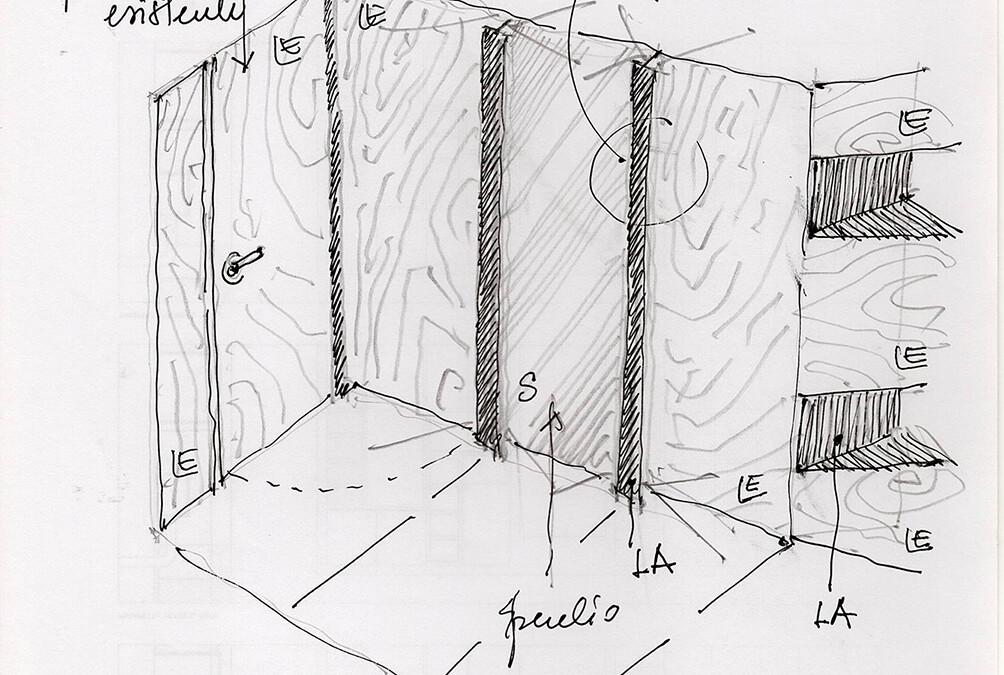 LE
LE
LE
LE
S
LE
LE
LE
LA
LA